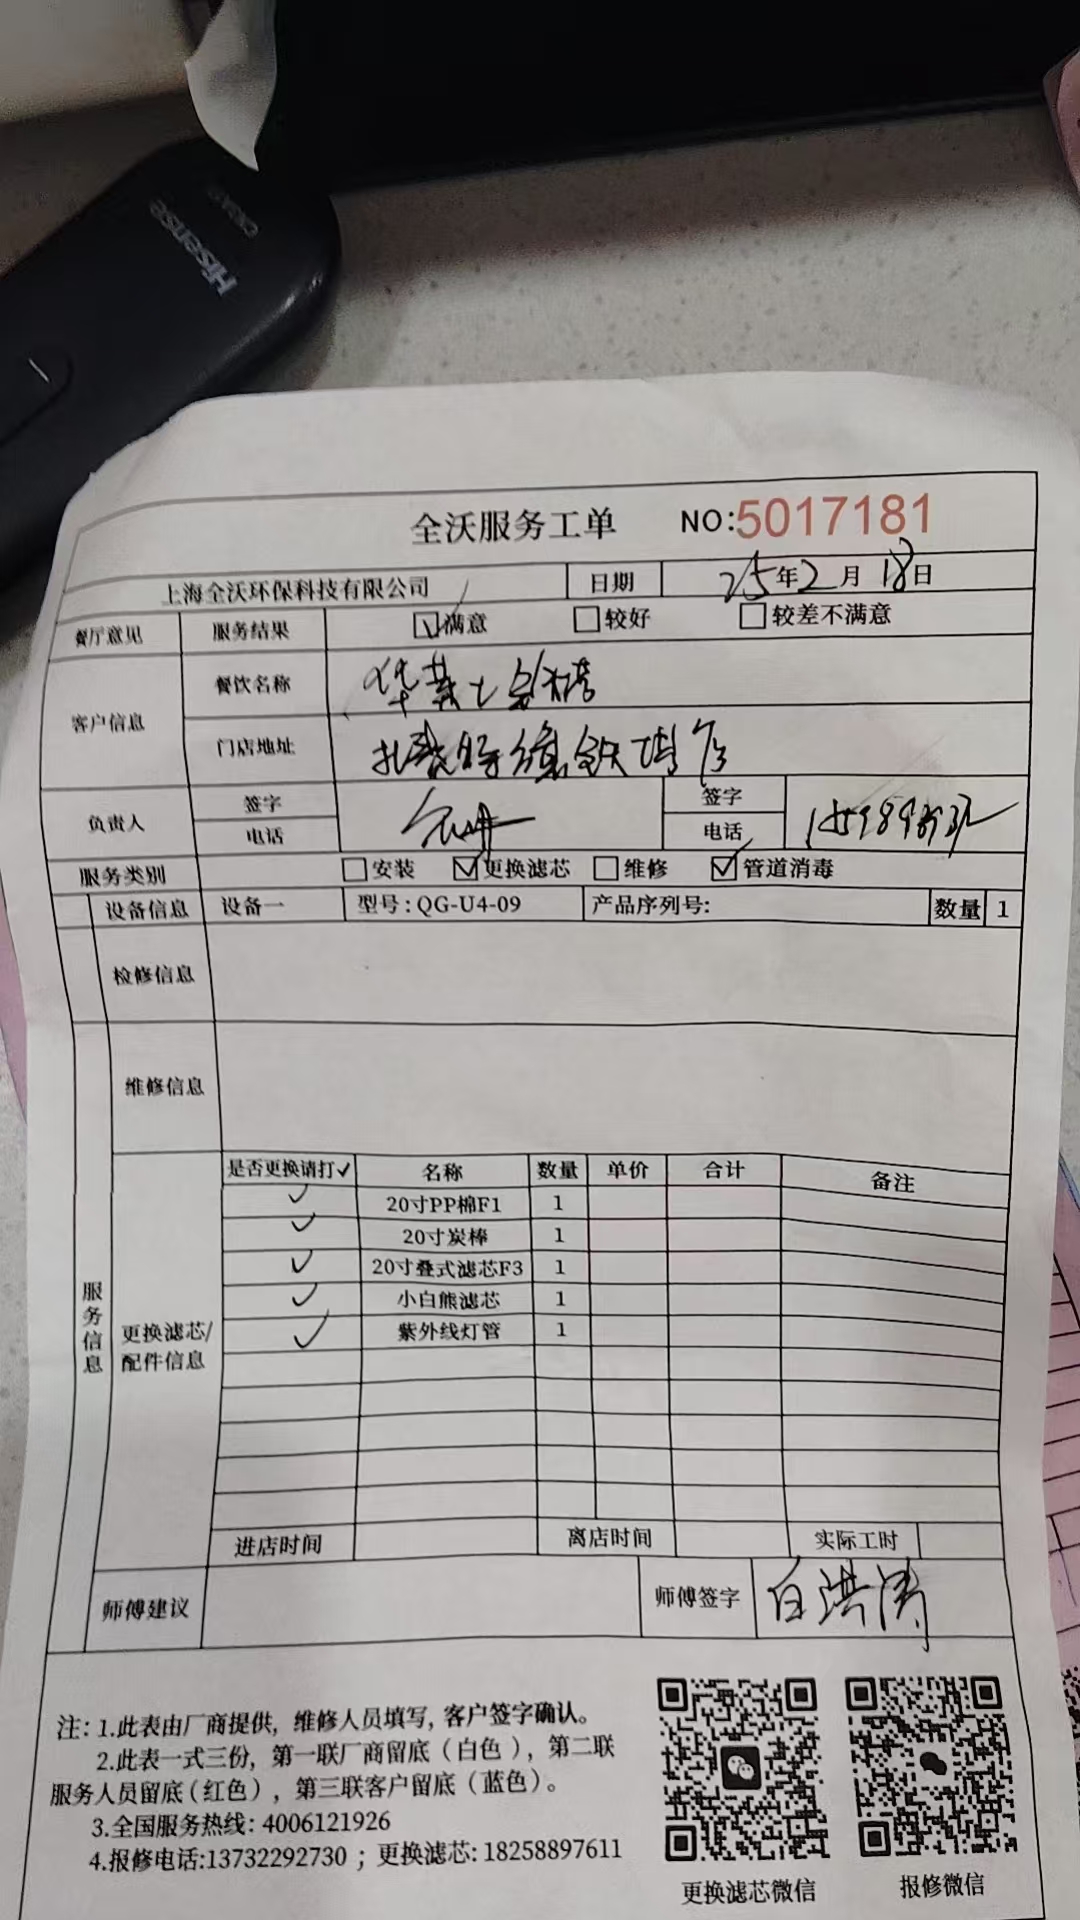 Hisense
全沃服务工单 NO:5017181
上海全沃环保科技有限公司 日期 25年2月18日
餐厅意见 服务结果 满意 较好 较差不满意
客户信息
餐饮名称 华莱士
门店地址
负责人 签字 签字
电话 电话
服务类别 安装 更换滤芯 维修 管道消毒
设备信息 设备一 型号:QG-U4-09 产品序列号: 数量 1
检修信息
维修信息
服务信息
更换滤芯/配件信息
是否更换请打✓ 名称 数量 单价 合计 备注
✓ 20寸PP棉F1 1
✓ 20寸炭棒 1
✓ 20寸叠式滤芯F3 1
✓ 小白熊滤芯 1
✓ 紫外线灯管 1
进店时间 离店时间 实际工时
师傅建议 师傅签字 白洪涛
注: 1.此表由厂商提供, 维修人员填写, 客户签字确认。
2.此表一式三份, 第一联厂商留底(白色), 第二联
服务人员留底(红色), 第三联客户留底(蓝色)。
3.全国服务热线: 4006121926
4.报修电话:13732292730 ; 更换滤芯: 18258897611
更换滤芯微信 报修微信